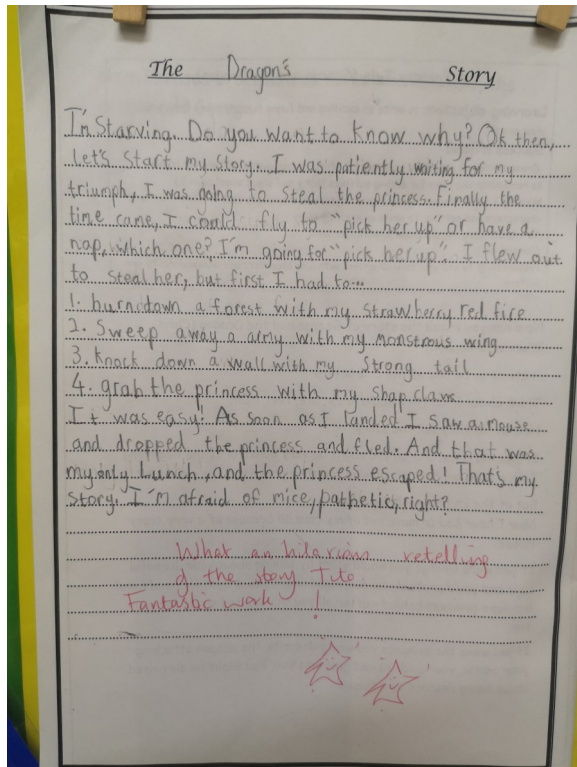 The Dragon's Story
I'm Starving. Do you want to know why? Ok then,
let's start my story. I was patiently waiting for my
triumph, I was going to steal the princess. Finally the
time came, I could fly to "pick her up" or have a
nap, which one? I'm going for "pick her up". I flew out
to steal her, but first I had to...
1. burn down a forest with my strawberry red fire
2. Sweep away a army with my monstrous wing
3. Knock down a wall with my strong tail
4. grab the princess with my shap claw
It was easy! As soon as I landed I saw a mouse
and dropped the princess and fled. And that was
my only Lunch, and the princess escaped! That's my
story. I'm afraid of mice, pathetic, right?
What an hilarious retelling
of the story Tito.
Fantastic work !